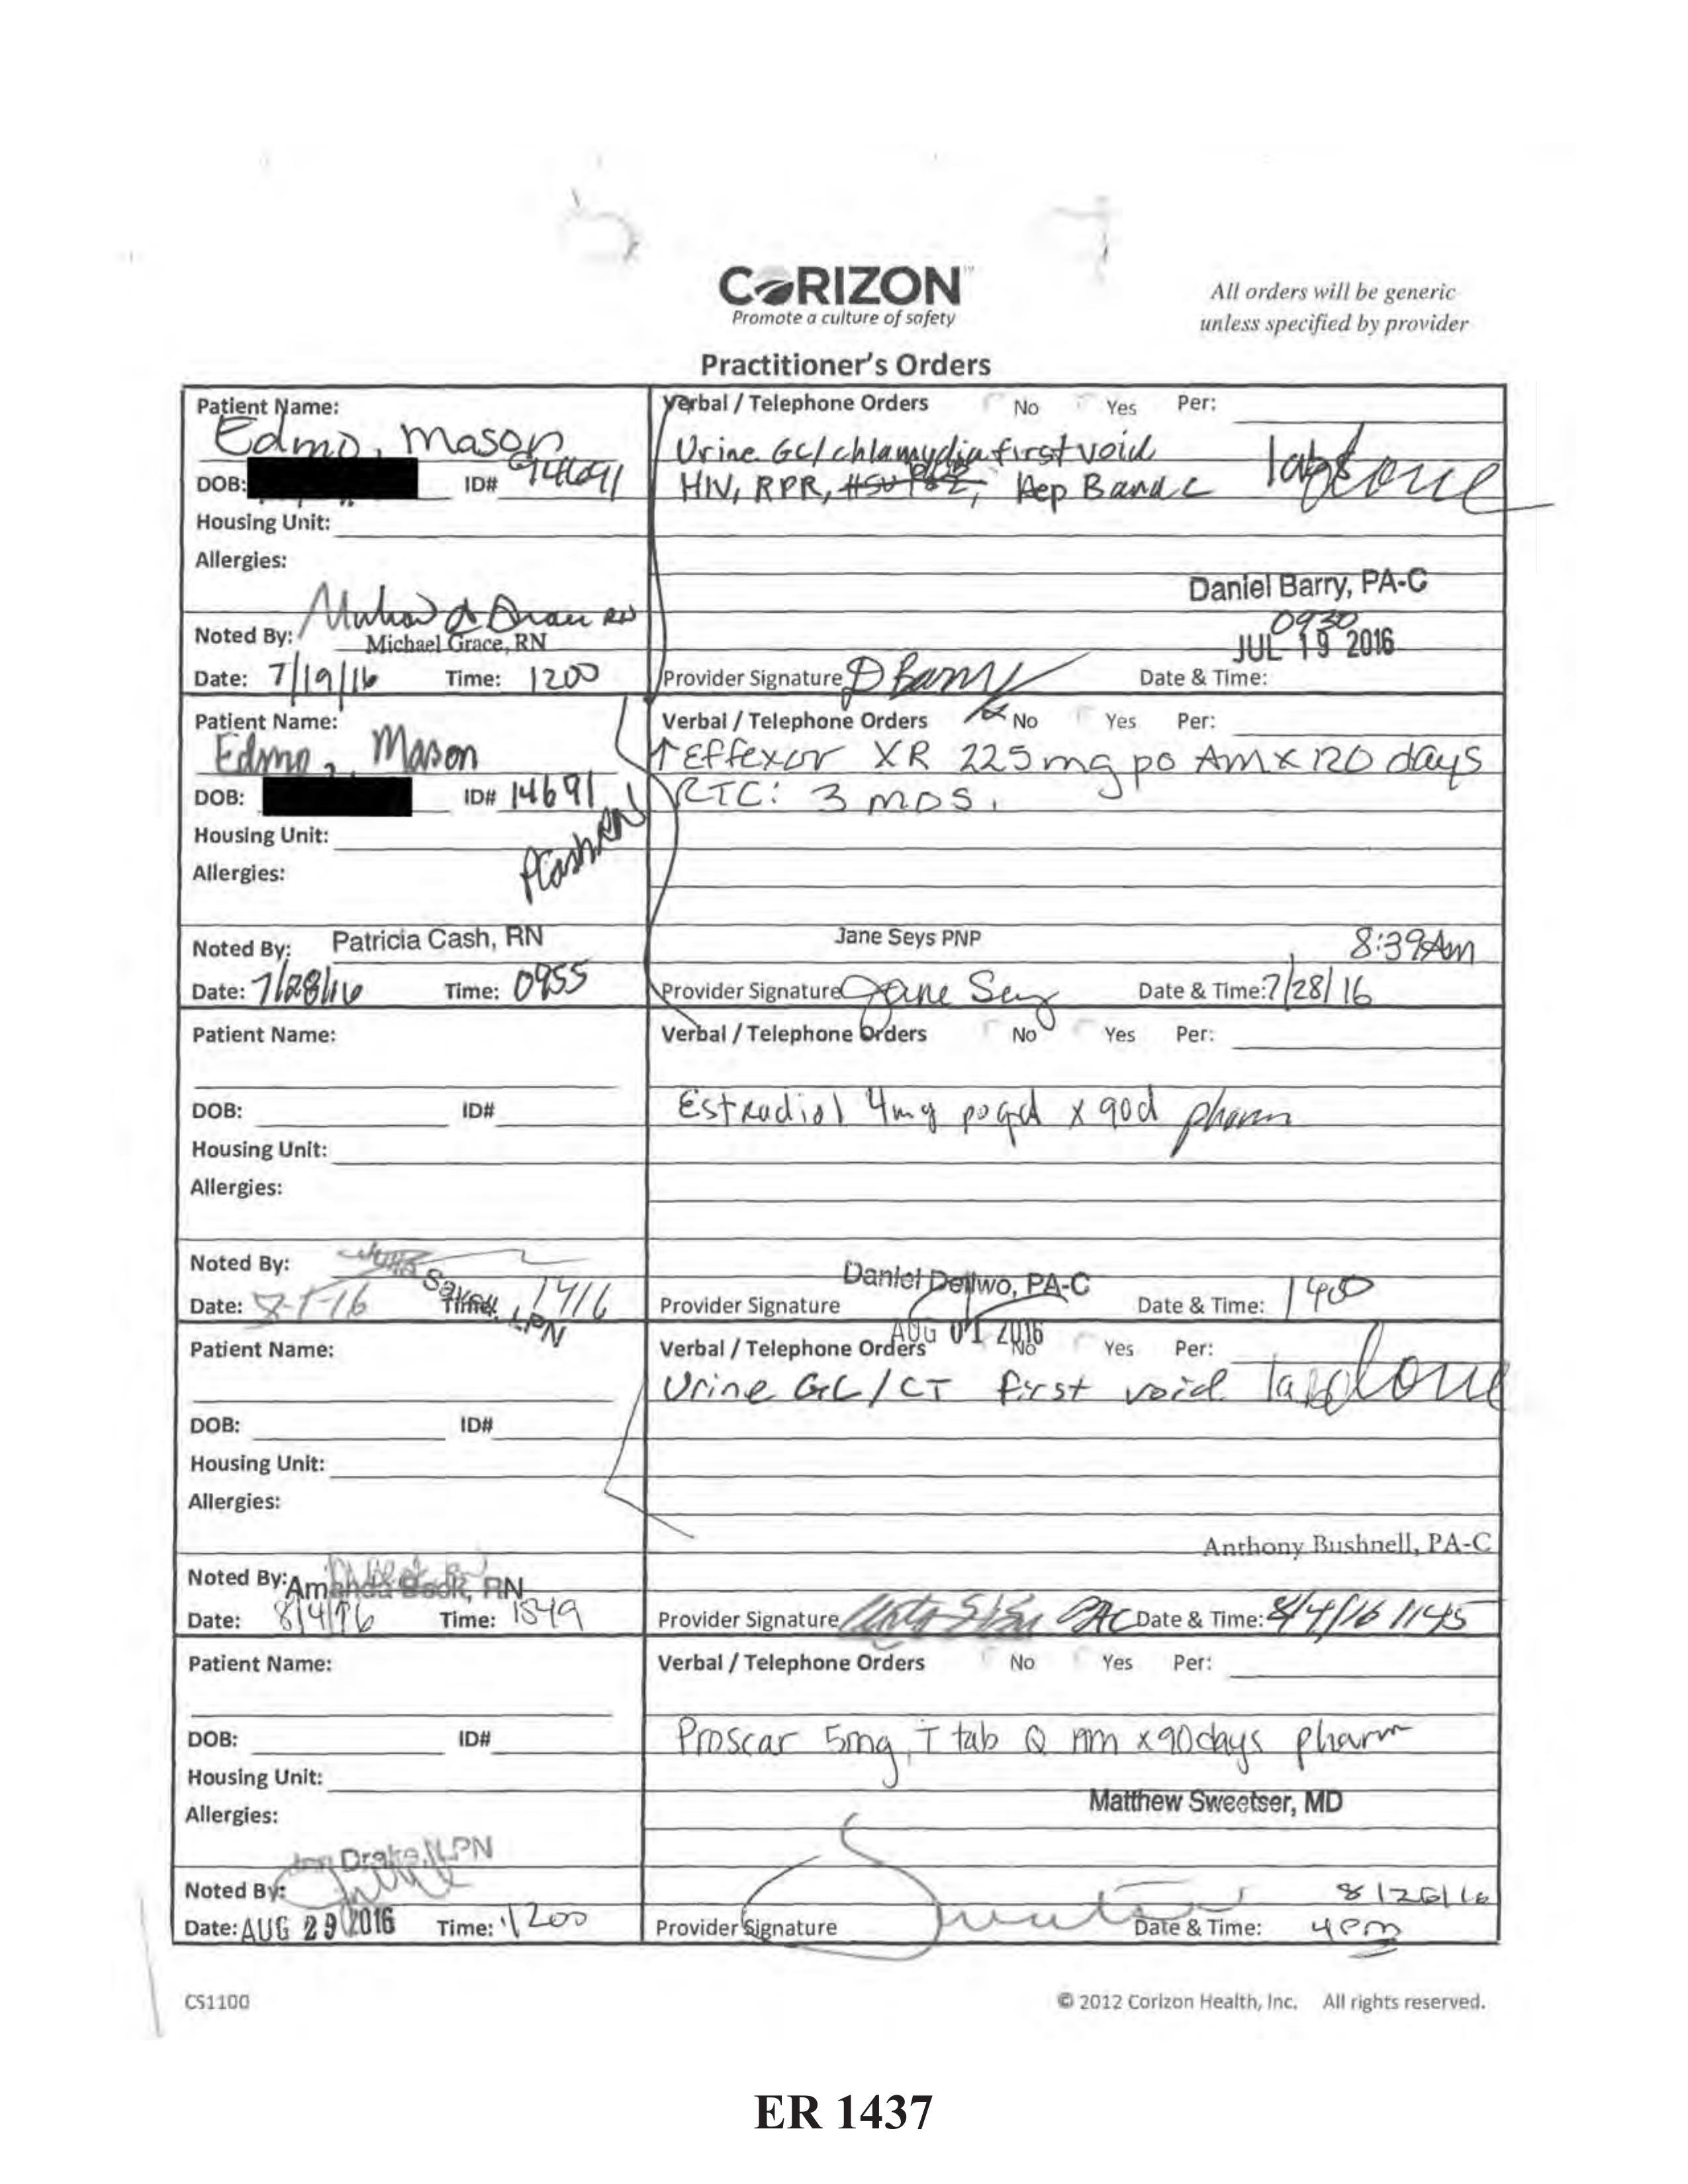 CORIZON™
Promote a culture of safety
All orders will be generic
unless specified by provider
Practitioner's Orders
Patient Name:
Edmo, Mason
DOB: ID#
Housing Unit:
Allergies:
Noted By: Michael Grace, RN
Date: 7/19/16 Time: 1200
Verbal / Telephone Orders No Yes Per:
Urine GC/chlamydia first void
HIV, RPR, Hep B and C
Daniel Barry, PA-C
0930
JUL 19 2016
Provider Signature D Barry Date & Time:
Patient Name:
Edmo, Mason
DOB: ID# 14691
Housing Unit:
Allergies:
PCash RN
Noted By: Patricia Cash, RN
Date: 7/28/16 Time: 0955
Verbal / Telephone Orders No Yes Per:
↑Effexor XR 225mg po AM x 120 days
RTC: 3 mos.
Jane Seys PNP 8:39Am
Provider Signature Jane Seys Date & Time: 7/28/16
Patient Name:
DOB: ID#
Housing Unit:
Allergies:
Noted By: LPN
Date: 8-1-16 Time: 1416
Verbal / Telephone Orders No Yes Per:
Estradiol 4mg po qd x 90d pharm
Daniel Dellwo, PA-C
Provider Signature Date & Time: 1400
AUG 01 2016
Patient Name:
DOB: ID#
Housing Unit:
Allergies:
Noted By: Amanda Book, RN
Date: 8/4/16 Time: 1549
Verbal / Telephone Orders No Yes Per:
Urine GC/CT first void
Anthony Bushnell, PA-C
Provider Signature PAC Date & Time: 8/4/16 1145
Patient Name:
DOB: ID#
Housing Unit:
Allergies:
Drake, LPN
Noted By:
Date: AUG 29 2016 Time: 1200
Verbal / Telephone Orders No Yes Per:
Proscar 5mg, T tab Q x 90days pharm
Matthew Sweetser, MD
8/26/16
Provider Signature Date & Time: 4pm
CS1100
© 2012 Corizon Health, Inc. All rights reserved.
ER 1437